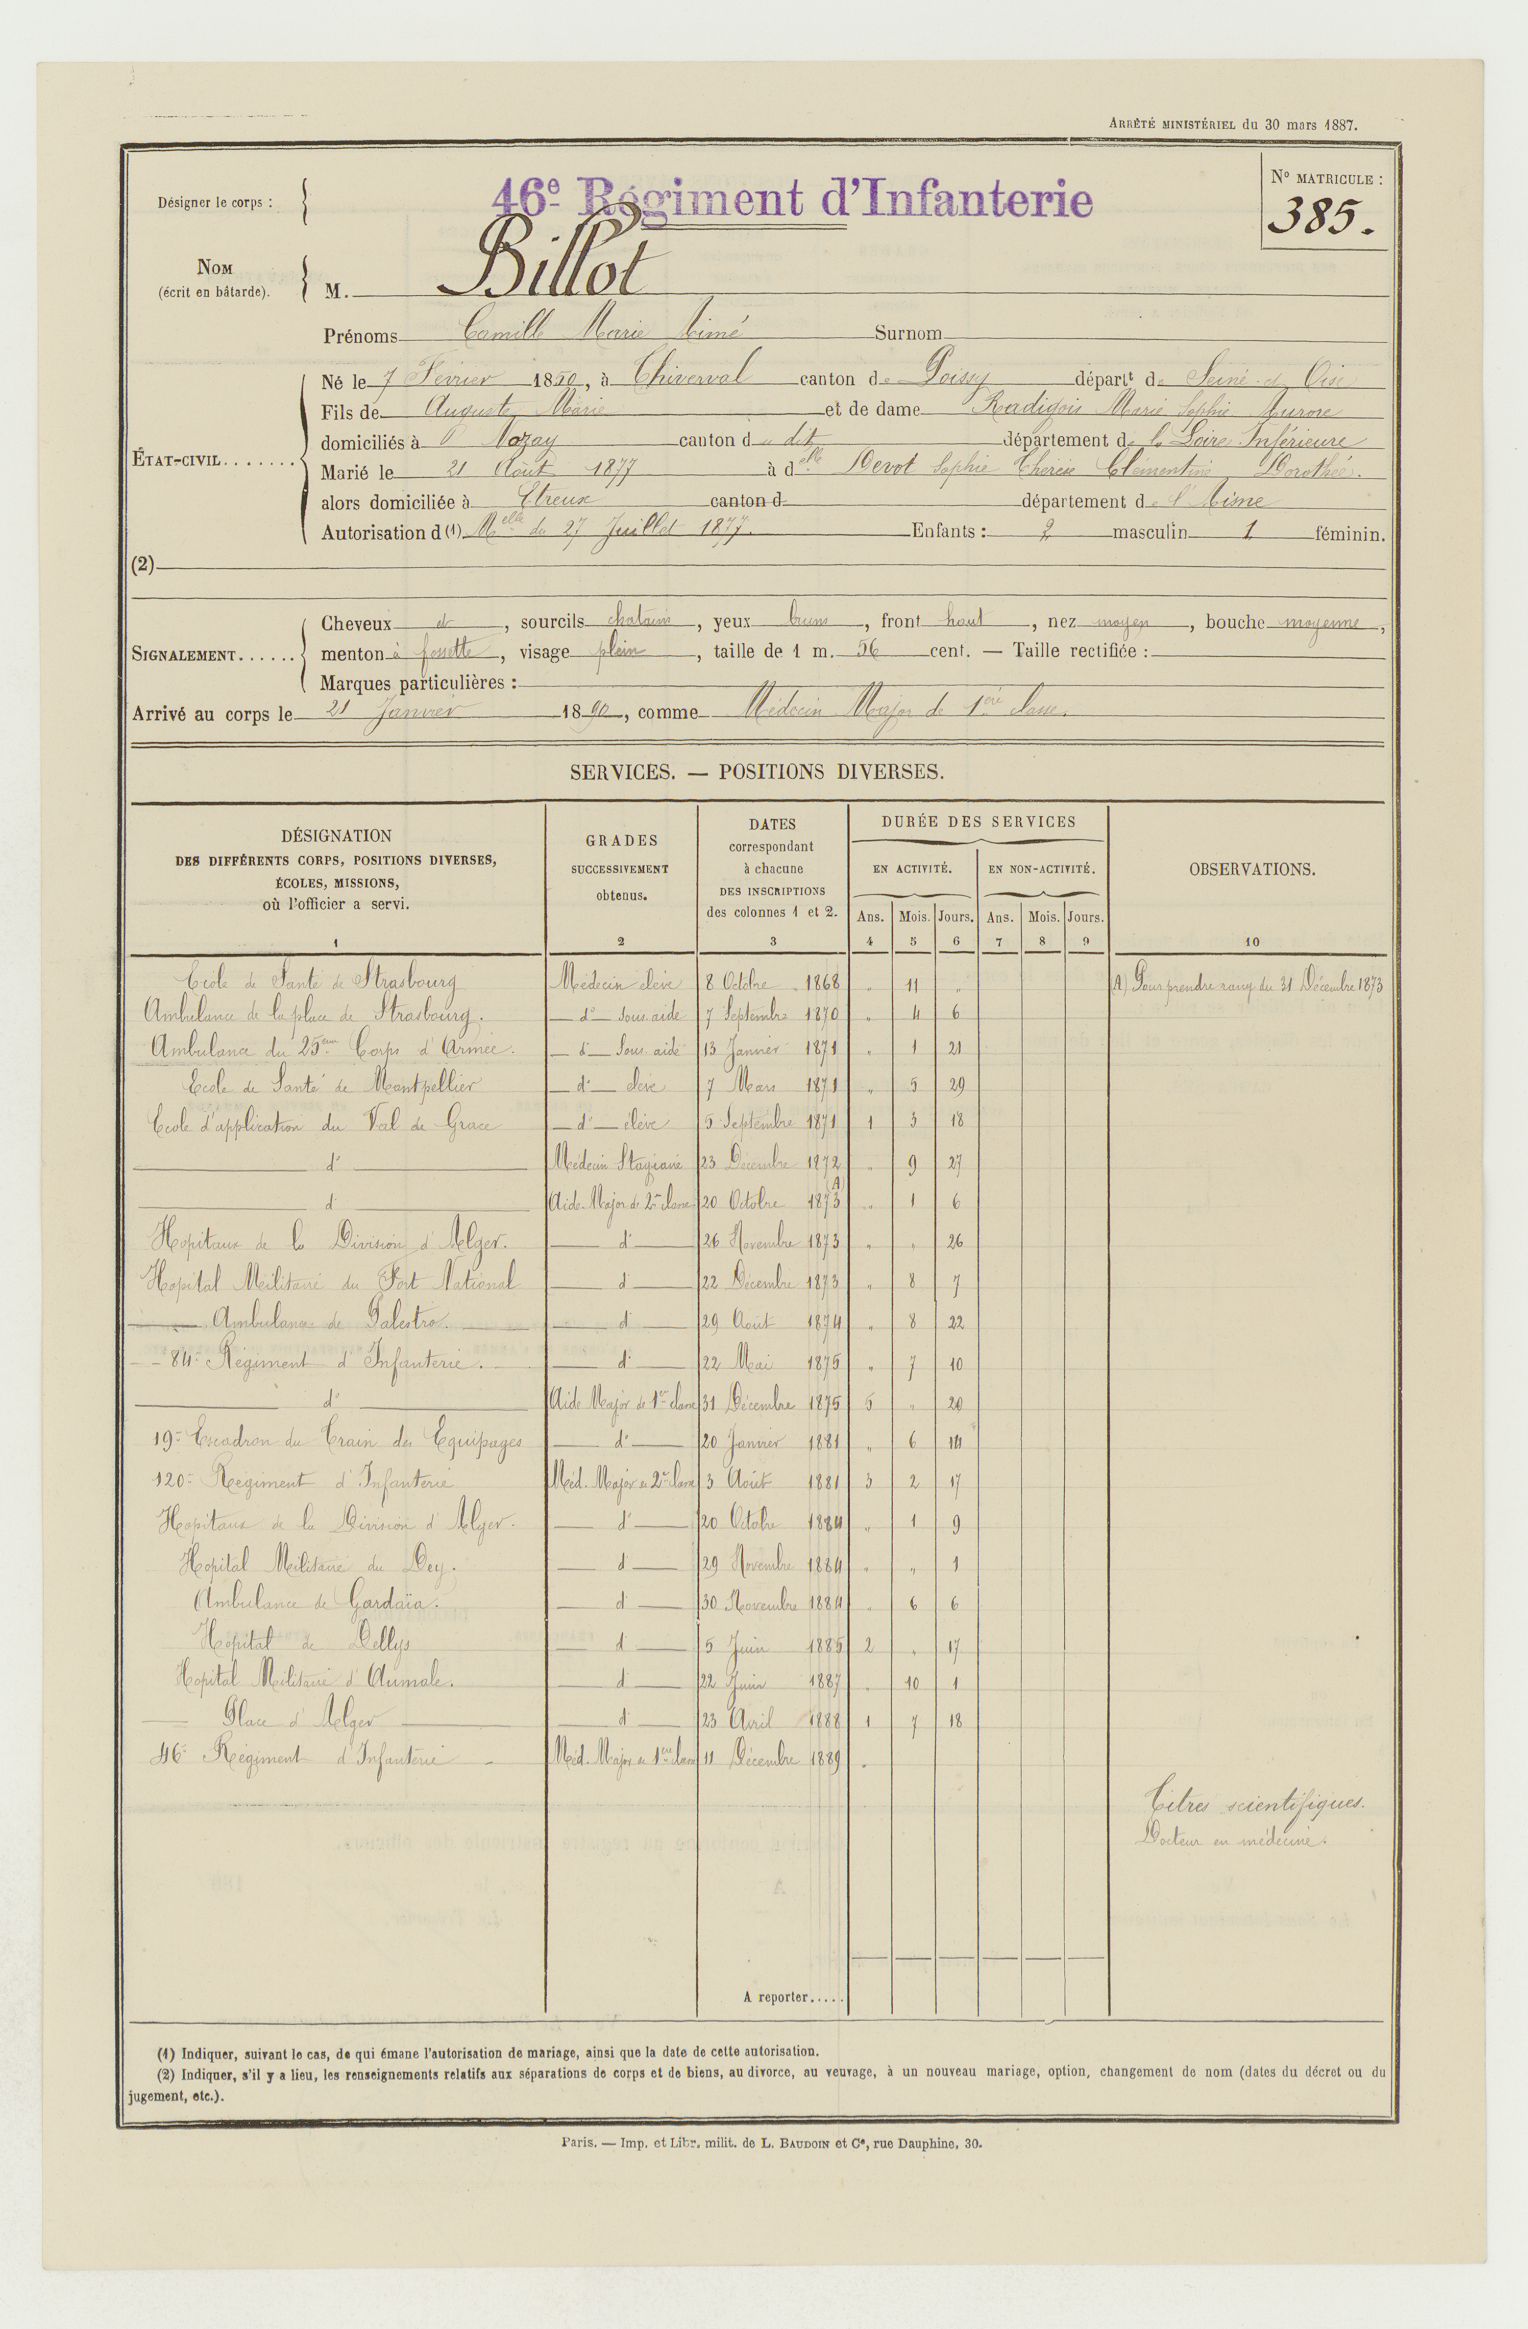 ARRÊTÉ MINISTÉRIEL du 30 mars 1887.
Désigner le corps : 46e Régiment d'Infanterie
No MATRICULE :
385.
NOM
(écrit en bâtarde). M. Billot
Prénoms Camille Marie Aimé Surnom
Né le 7 Février 1850, à Thiverval canton de Poissy départt de Seine et Oise
Fils de Auguste Marie et de dame Radigois Marie Sophie Aurore
domiciliés à Nozay canton du dit département de la Loire Inférieure
ÉTAT-CIVIL.......
Marié le 21 Août 1877 à delle Devot Sophie Thérèse Clémentine Dorothée.
alors domiciliée à Etreux canton d département de l'Aisne
Autorisation d (1) Melle du 27 Juillet 1877. Enfants : 2 masculin 1 féminin.
(2)
Cheveux et, sourcils chatains, yeux bruns, front haut, nez moyen, bouche moyenne,
SIGNALEMENT...... menton à fossette, visage plein, taille de 1 m. 56 cent. — Taille rectifiée :
Marques particulières :
Arrivé au corps le 21 Janvier 1890, comme Médecin Major de 1ère classe.
SERVICES. — POSITIONS DIVERSES.
DÉSIGNATION
DES DIFFÉRENTS CORPS, POSITIONS DIVERSES,
ÉCOLES, MISSIONS,
où l'officier a servi.
1
GRADES
SUCCESSIVEMENT
obtenus.
2
DATES
correspondant
à chacune
DES INSCRIPTIONS
des colonnes 1 et 2.
3
DURÉE DES SERVICES
EN ACTIVITÉ. EN NON-ACTIVITÉ.
Ans. Mois. Jours. Ans. Mois. Jours.
4 5 6 7 8 9
OBSERVATIONS.
10
Ecole de Santé de Strasbourg Médecin élève 8 Octobre 1868 " 11 " (A) Pour prendre rang du 31 Décembre 1873
Ambulance de la place de Strasbourg. — do — Sous aide 7 Septembre 1870 " 4 6
Ambulance du 25eme Corps d'Armée. — d° — Sous aide 13 Janvier 1871 " 1 21
Ecole de Santé de Montpellier — d° — élève 7 Mars 1871 " 5 29
Ecole d'application du Val de Grace — d° — élève 5 Septembre 1871 1 3 18
d° Médecin Stagiaire 23 Décembre 1872 " 9 27
d° Aide-Major de 2me classe 20 Octobre 1873 (A) " 1 6
Hopitaux de la Division d'Alger. d° 26 Novembre 1873 " " 26
Hopital Militaire du Fort National d° 22 Décembre 1873 " 8 7
Ambulance de Palestro. d° 29 Août 1874 " 8 22
84e Régiment d'Infanterie. d° 22 Mai 1875 " 7 10
d° Aide Major de 1ere classe 31 Décembre 1875 5 " 20
19e Escadron du Train des Equipages d° 20 Janvier 1881 " 6 14
120e Régiment d'Infanterie Méd. Major de 2e classe 3 Août 1881 3 2 17
Hopitaux de la Division d'Alger. d° 20 Octobre 1884 " 1 9
Hopital Militaire du Dey. d° 29 Novembre 1884 " " 1
Ambulance de Gardaïa. d° 30 Novembre 1884 " 6 6
Hopital de Dellys d° 5 Juin 1885 2 " 17
Hopital Militaire d'Aumale. d° 22 Juin 1887 " 10 1
Place d'Alger d° 23 Avril 1888 1 7 18
46e Régiment d'Infanterie Méd. Major de 1ère classe 11 Décembre 1889 "
Titres scientifiques.
Docteur en médecine.
A reporter.....
(1) Indiquer, suivant le cas, de qui émane l'autorisation de mariage, ainsi que la date de cette autorisation.
(2) Indiquer, s'il y a lieu, les renseignements relatifs aux séparations de corps et de biens, au divorce, au veuvage, à un nouveau mariage, option, changement de nom (dates du décret ou du
jugement, etc.).
Paris. — Imp. et Libr. milit. de L. BAUDOIN et Ce, rue Dauphine, 30.